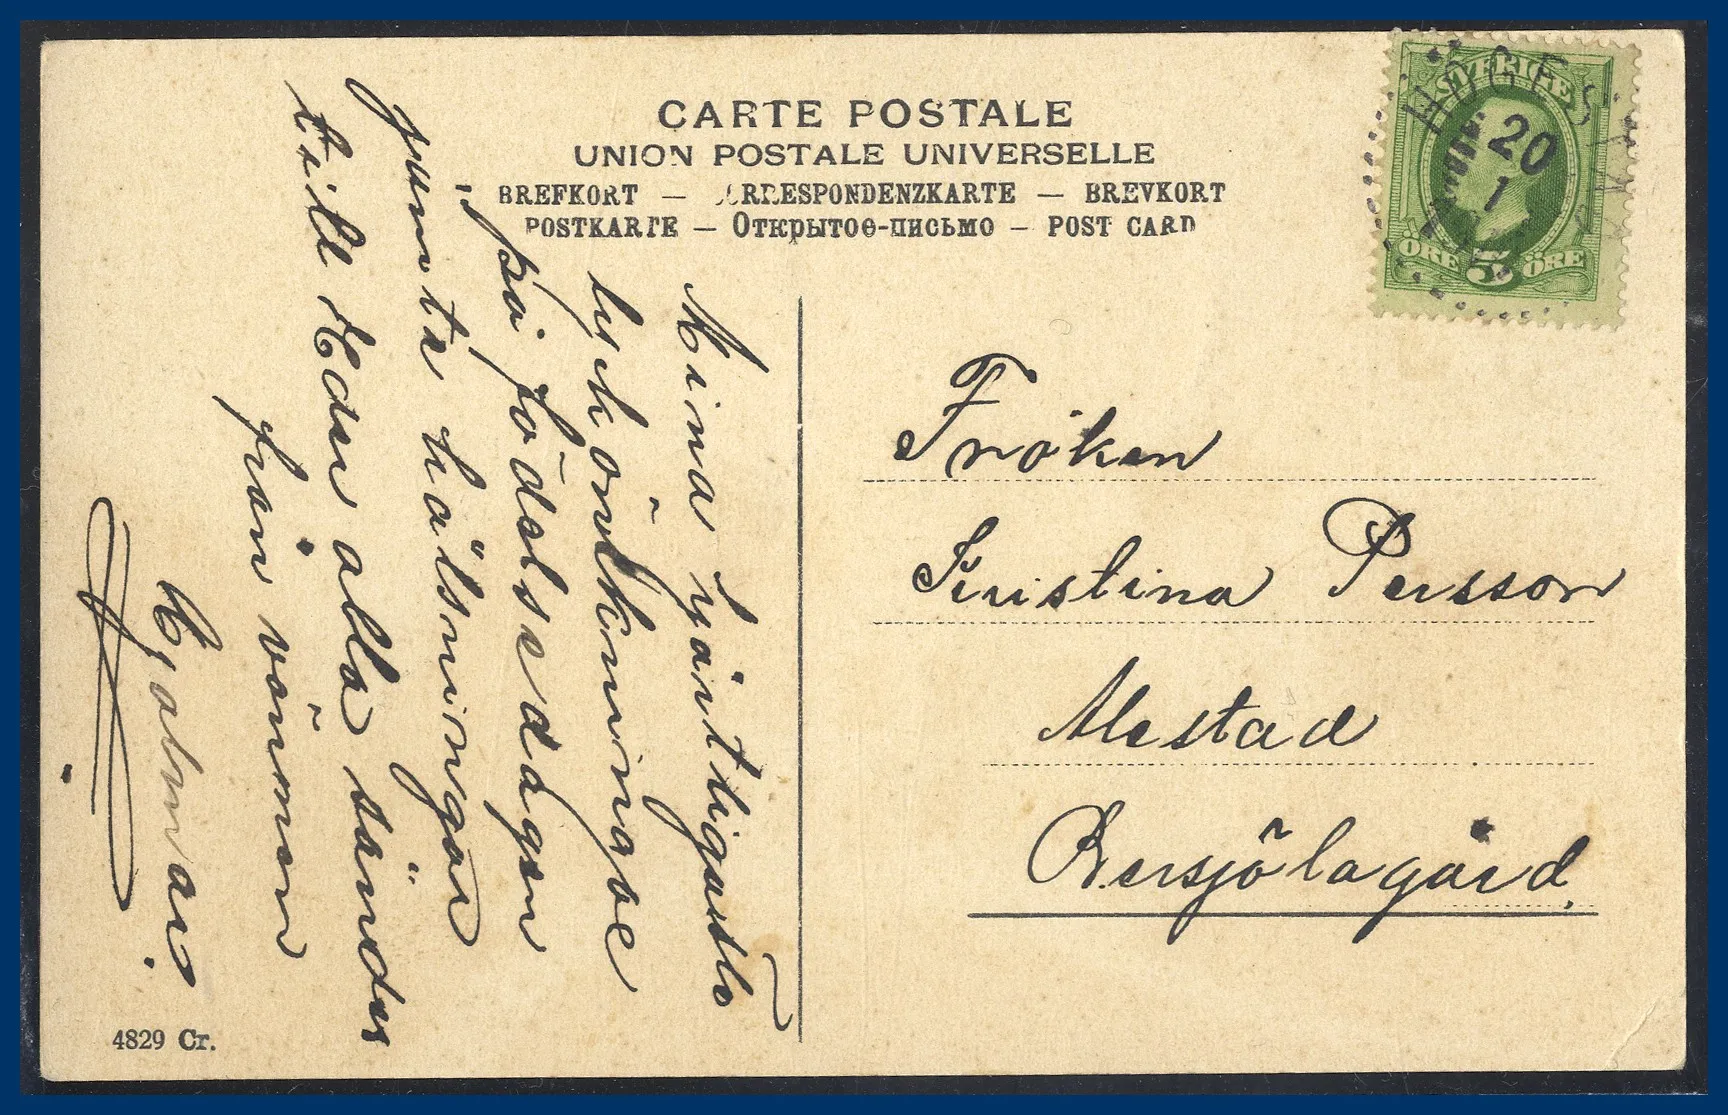 CARTE POSTALE
UNION POSTALE UNIVERSELLE
BREFKORT — CORRESPONDENZKARTE — BREVKORT
POSTKARTE — Открытое-письмо — POST CARD
SVERIGE
5
ÖRE ÖRE
HÖGES
20
1
Mina hjärtligaste
lyckönskningar
på födelsedagen
jämte hälsningar
till Eder alla sänder
från vännen
Hjalmar.
Fröken
Kristina Persson
Alestad
Bersjölagård.
4829 Cr.